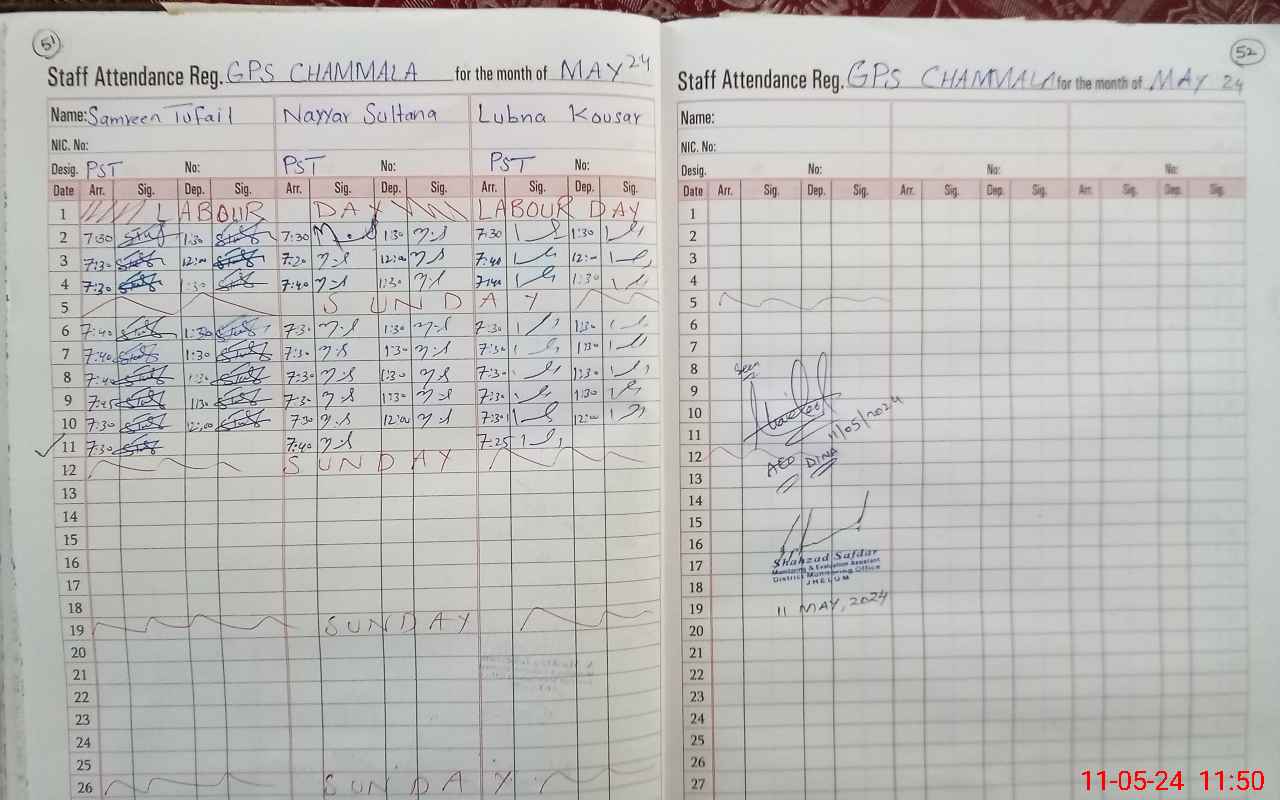 51
Staff Attendance Reg. GPS CHAMMALA for the month of MAY 24
Name: Samreen Tufail Nayyar Sultana Lubna Kousar
NIC. No:
Desig. PST No: PST No: PST No:
Date Arr. Sig. Dep. Sig. Arr. Sig. Dep. Sig. Arr. Sig. Dep. Sig.
1 LABOUR DAY LABOUR DAY
2 7:30 1:30 7:30 1:30 7:30 1:30
3 7:30 12:00 7:20 12:00 7:40 12:00
4 7:30 1:30 7:40 1:30 7:40 1:30
5 SUNDAY
6 7:40 1:30 7:30 1:30 7:30 1:30
7 7:40 1:30 7:30 1:30 7:30 1:30
8 7:40 1:30 7:30 1:30 7:30 1:30
9 7:45 1:30 7:30 1:30 7:30 1:30
10 7:30 12:00 7:30 12:00 7:30 12:00
11 7:30 7:40 7:25
12 SUNDAY
13
14
15
16
17
18
19 SUNDAY
20
21
22
23
24
25
26 SUNDAY
52
Staff Attendance Reg. GPS CHAMMALA for the month of MAY 24
Name:
NIC. No:
Desig. No: No: No:
Date Arr. Sig. Dep. Sig. Arr. Sig. Dep. Sig. Arr. Sig. Dep. Sig.
1
2
3
4
5
6
7
8 Seen
9
10
11 11/05/2024
12 AEO DINA
13
14
15
16
17 Shahzad Safdar
Monitoring & Evaluation Assistant
District Monitoring Office
18 JHELUM
19 11 MAY, 2024
20
21
22
23
24
25
26
27
11-05-24 11:50